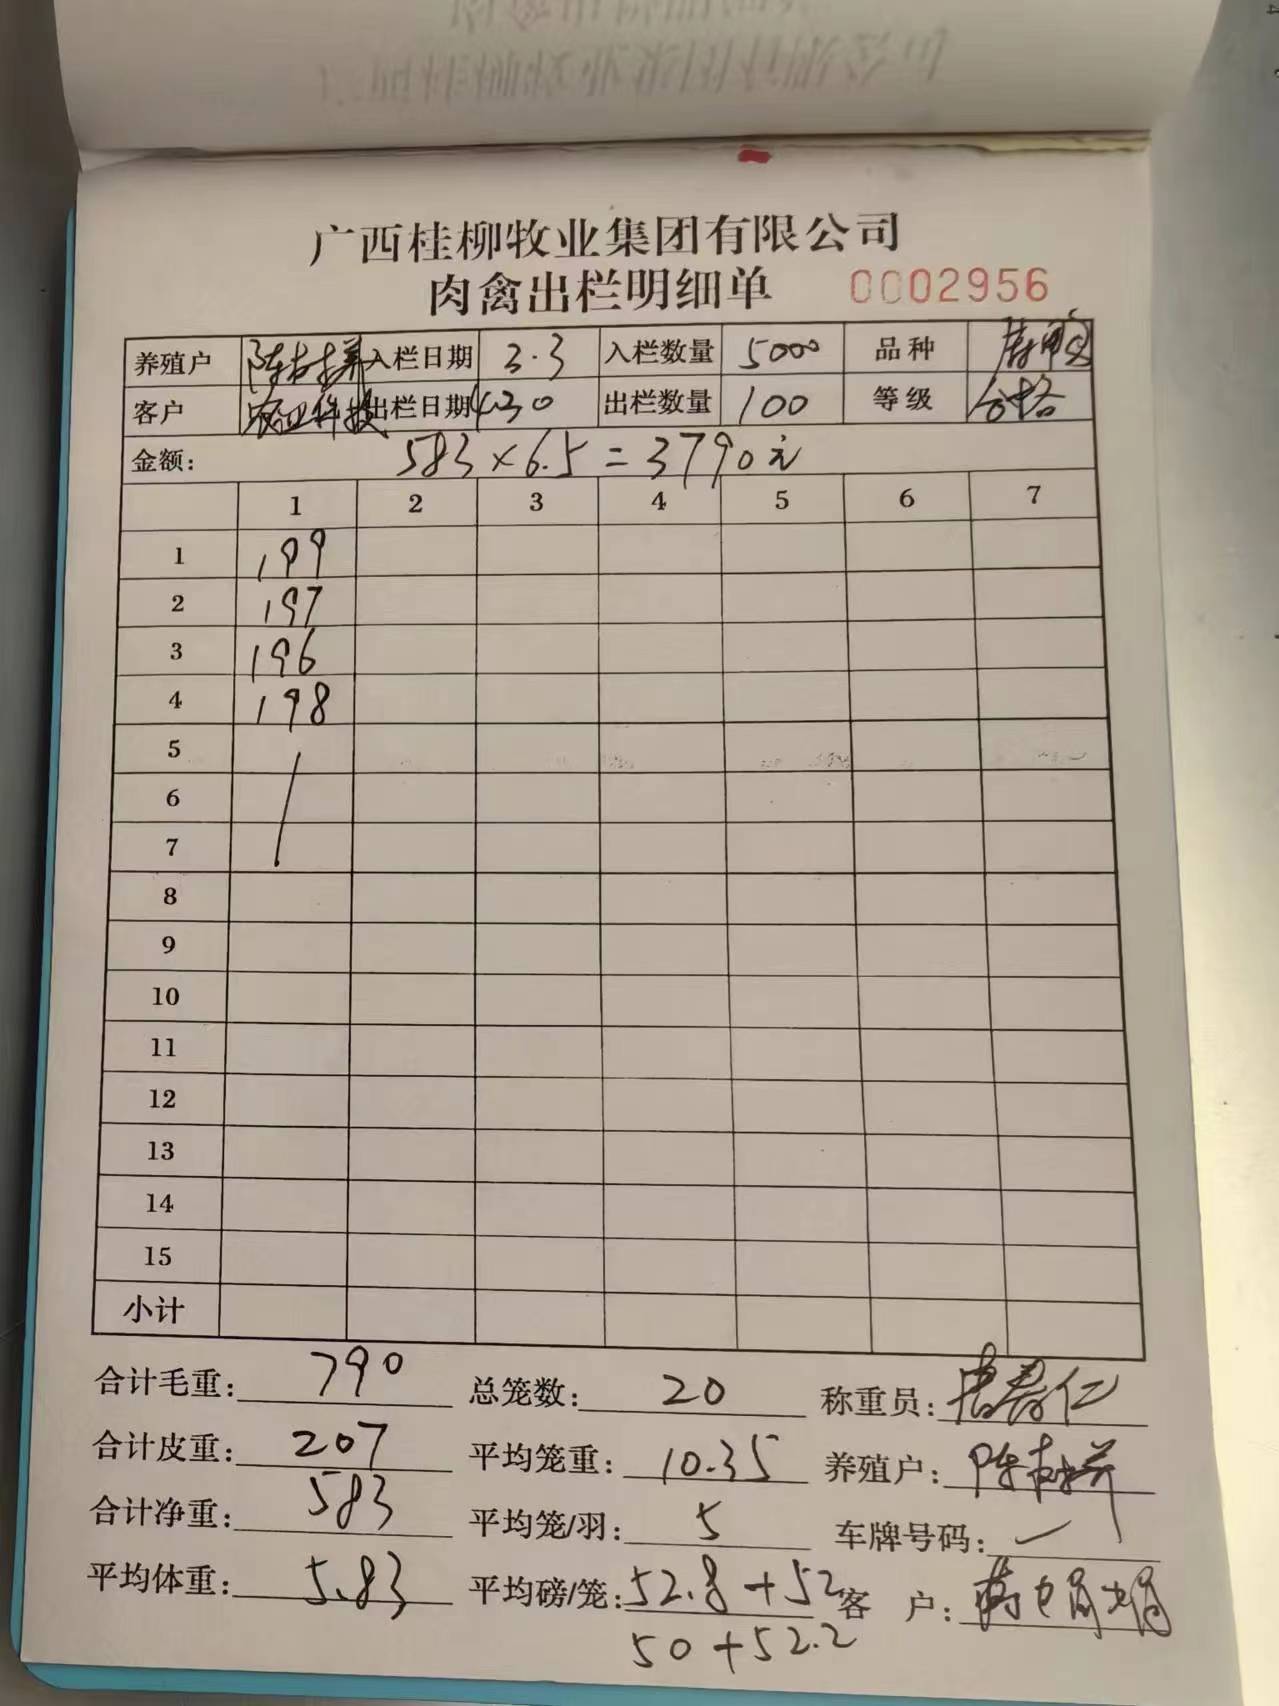 广西桂柳牧业集团有限公司
肉禽出栏明细单 0002956
养殖户 入栏日期 3.3 入栏数量 5000 品种
客户 农业科技 出栏日期 4.30 出栏数量 100 等级 合格
金额: 583×6.5=3790元
1 2 3 4 5 6 7
1 199
2 197
3 196
4 198
5
6
7
8
9
10
11
12
13
14
15
小计
合计毛重: 790 总笼数: 20 称重员:
合计皮重: 207 平均笼重: 10.35 养殖户:
合计净重: 583 平均笼/羽: 5 车牌号码:
平均体重: 5.83 平均磅/笼: 52.8+52 客户:
50+52.2